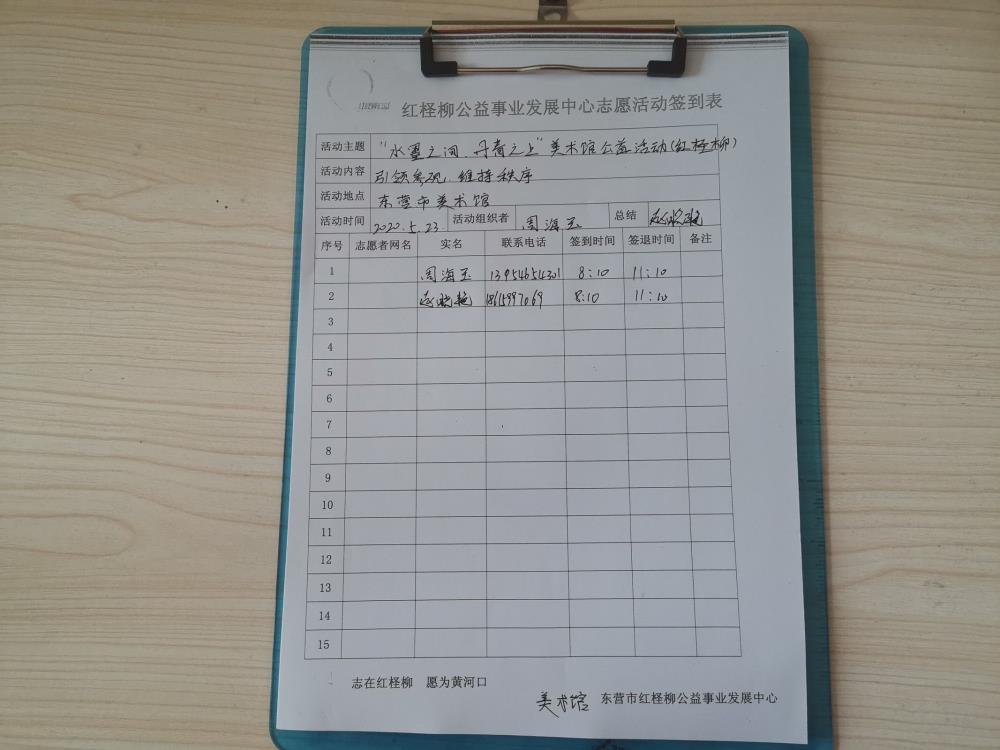 红柽柳公益事业发展中心志愿活动签到表
活动主题 “水墨之间、丹青之上”美术馆公益活动(红柽柳)
活动内容 引领参观、维持秩序
活动地点 东营市美术馆
活动时间 2020.5.23 活动组织者 周海玉 总结
序号 志愿者网名 实名 联系电话 签到时间 签退时间 备注
1 周海玉 13954654301 8:10 11:10
2 8:10 11:10
3
4
5
6
7
8
9
10
11
12
13
14
15
志在红柽柳 愿为黄河口
美术馆 东营市红柽柳公益事业发展中心